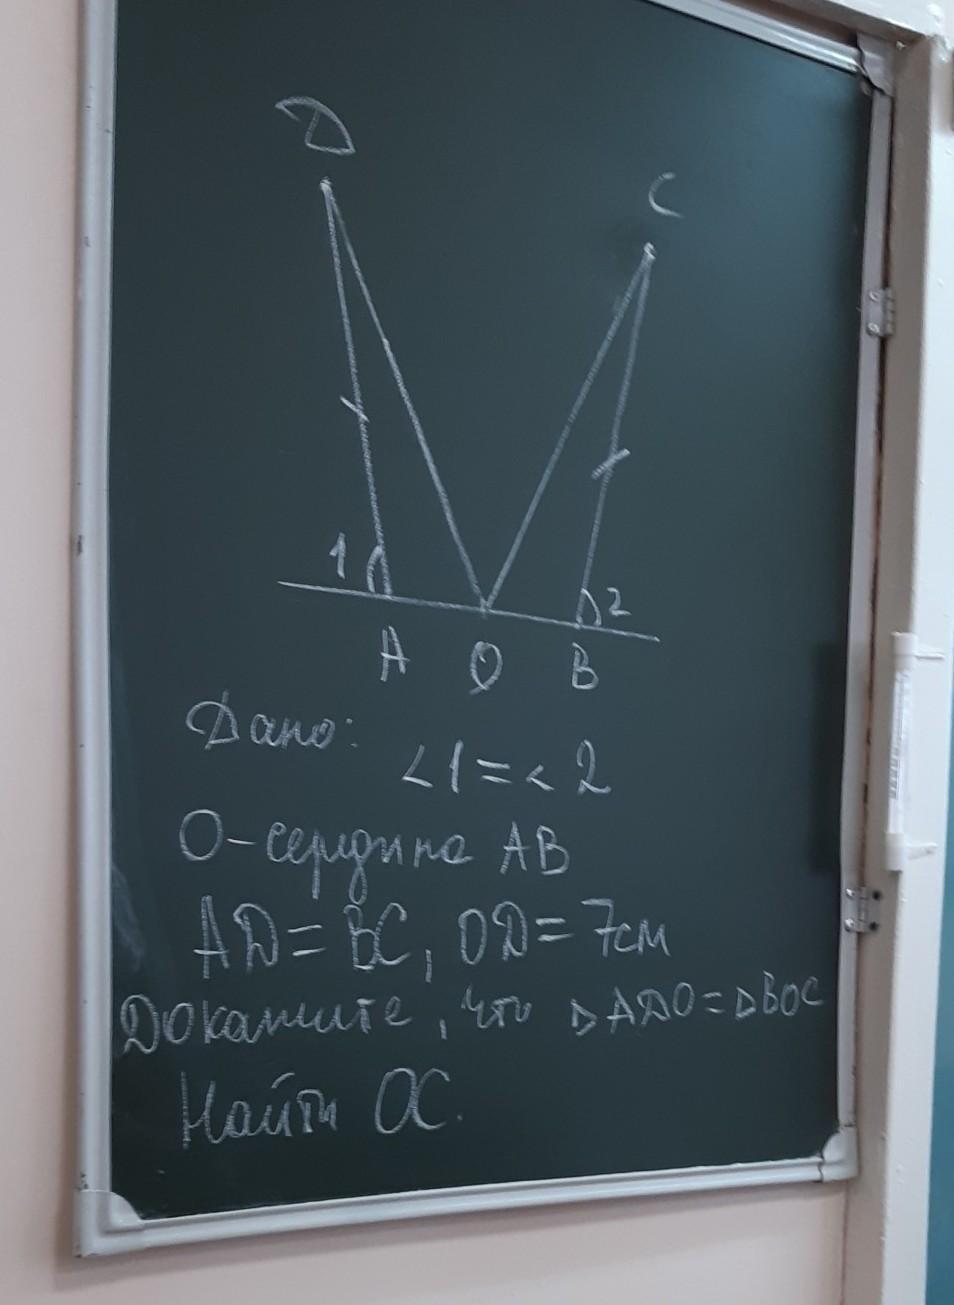 D
C
1
2
A O B
Дано:
<1=<2
О-середина AB
AD=BC, OD=7см
Докажите, что ▷ADO=▷BOC
Найти OC.